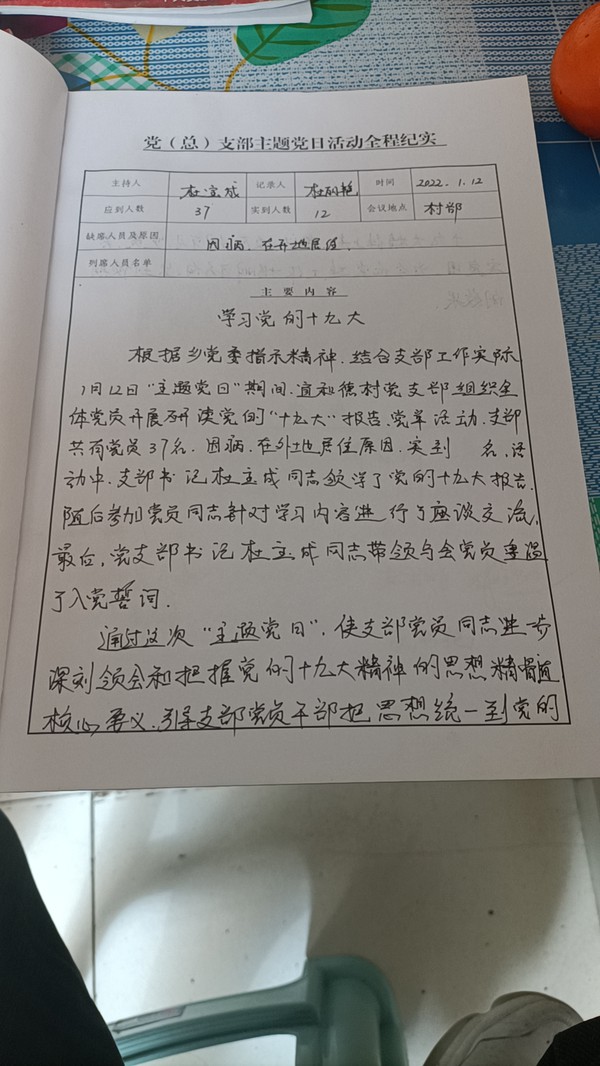 党（总）支部主题党日活动全程纪实
主持人 杜立成 记录人 时间 2022.1.12
应到人数 37 实到人数 12 会议地点 村部
缺席人员及原因 因病.在外地居住.
列席人员名单
主要内容
学习党的十九大
根据乡党委指示精神.结合支部工作实际
1月12日"主题党日"期间.宜和德村党支部组织全
体党员开展研读党的"十九大"报告.党章活动.支部
共有党员37名.因病.在外地居住原因.实到 名.活
动中.支部书记杜立成同志领学了党的十九大报告.
随后参加党员同志针对学习内容进行了座谈交流.
最后,党支部书记杜立成同志带领与会党员重温
了入党誓词.
通过这次"主题党日".使支部党员同志进一步
深刻领会和把握党的十九大精神的思想精髓
核心要义.引导支部党员干部把思想统一到党的